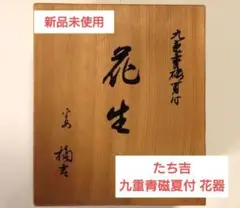 新品未使用
九重青磁夏付
花生
たち吉
九重青磁夏付 花器